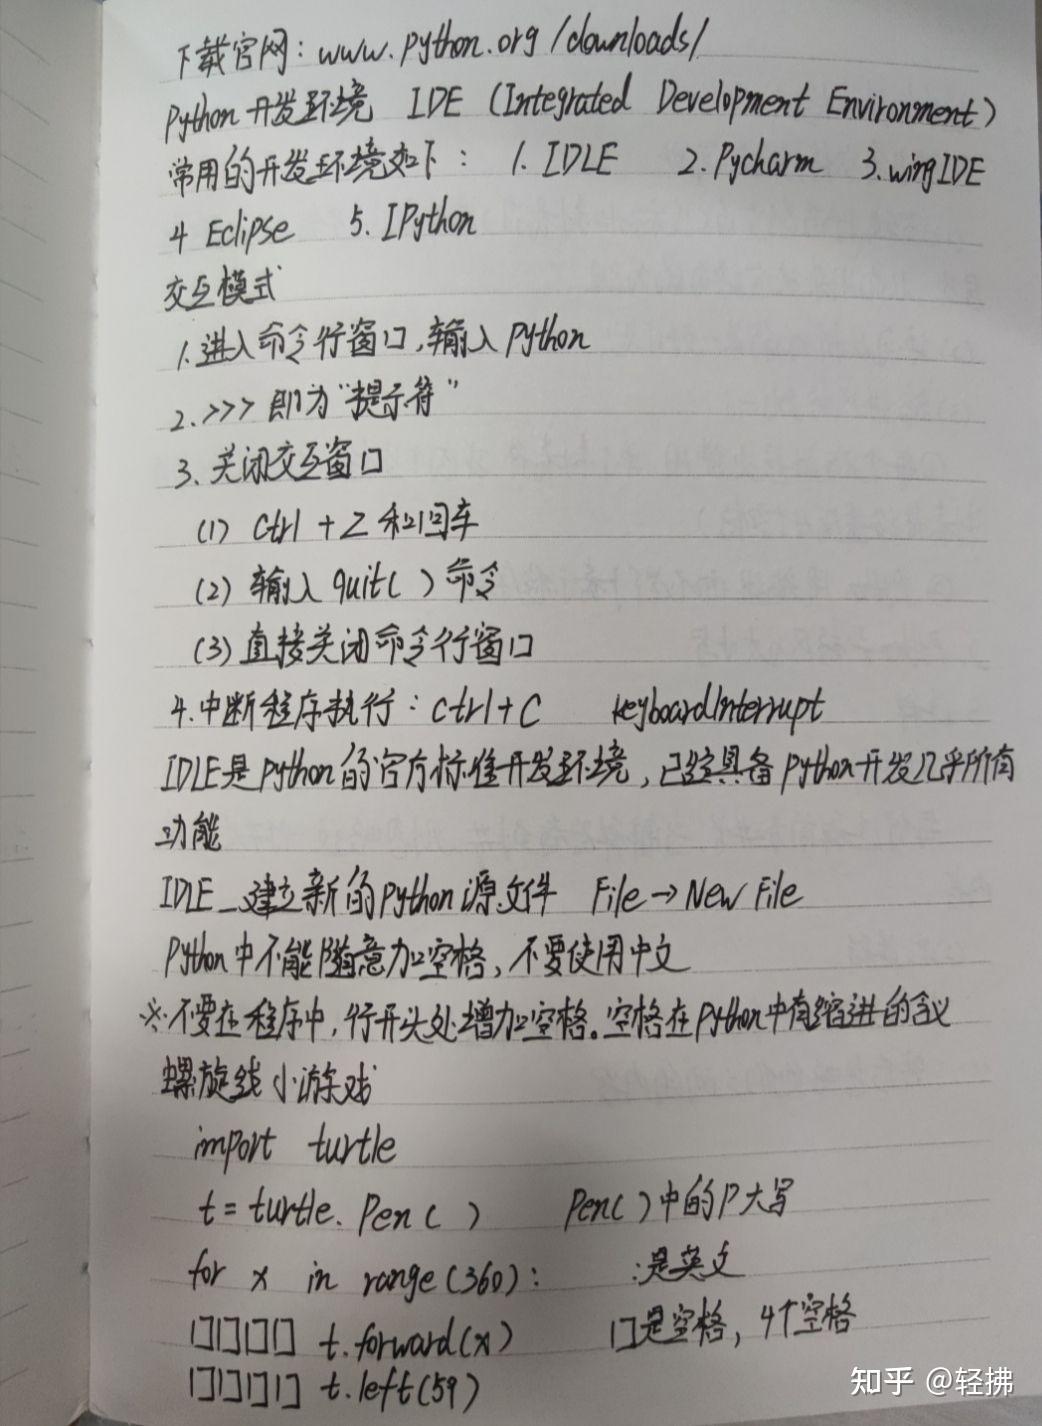 下载官网：www.python.org/downloads/
Python开发环境 IDE (Integrated Development Environment)
常用的开发环境如下： 1. IDLE 2. Pycharm 3. wingIDE
4 Eclipse 5. IPython
交互模式
1. 进入命令行窗口，输入python
2. >>> 即为“提示符”
3、关闭交互窗口
(1) Ctrl + Z 和回车
(2) 输入 quit( ) 命令
(3) 直接关闭命令行窗口
4. 中断程序执行：ctrl+C keyboardInterrupt
IDLE是python的官方标准开发环境，已经具备python开发几乎所有
功能
IDLE_建立新的python源文件 File→New File
Python中不能随意加空格，不要使用中文
※不要在程序中，行开头处增加空格。空格在python中有缩进的含义
螺旋线小游戏
import turtle
t = turtle. Pen ( ) Pen( )中的P大写
for x in range (360) : :是英文
口口口口 t.forward(x) 口是空格，4个空格
口口口口 t.left(59)
知乎 @轻拂